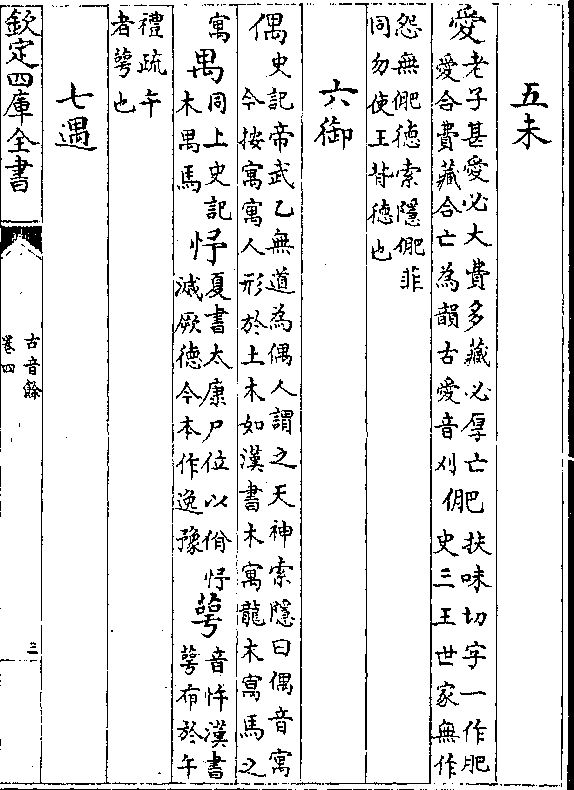 五未
愛老子甚愛必大費多藏必厚亡
愛合費藏合亡為韻古愛音刈
俷扶味切字一作肥
史三王世家無作
怨無俷德索隱俷菲
同勿使王背德也
六御
偶史記帝武乙無道為偶人謂之天神索隱曰偶音寓
今按寓寓人形於土木如漢書木寓龍木寓馬之
寓
禺同上史記
木禺馬
忬夏書太康尸位以佾忬
滅厥德今本作逸豫
萼音忤漢書
萼布於午
禮疏午
者萼也
七遇
欽定四庫全書
古音餘
卷四
三